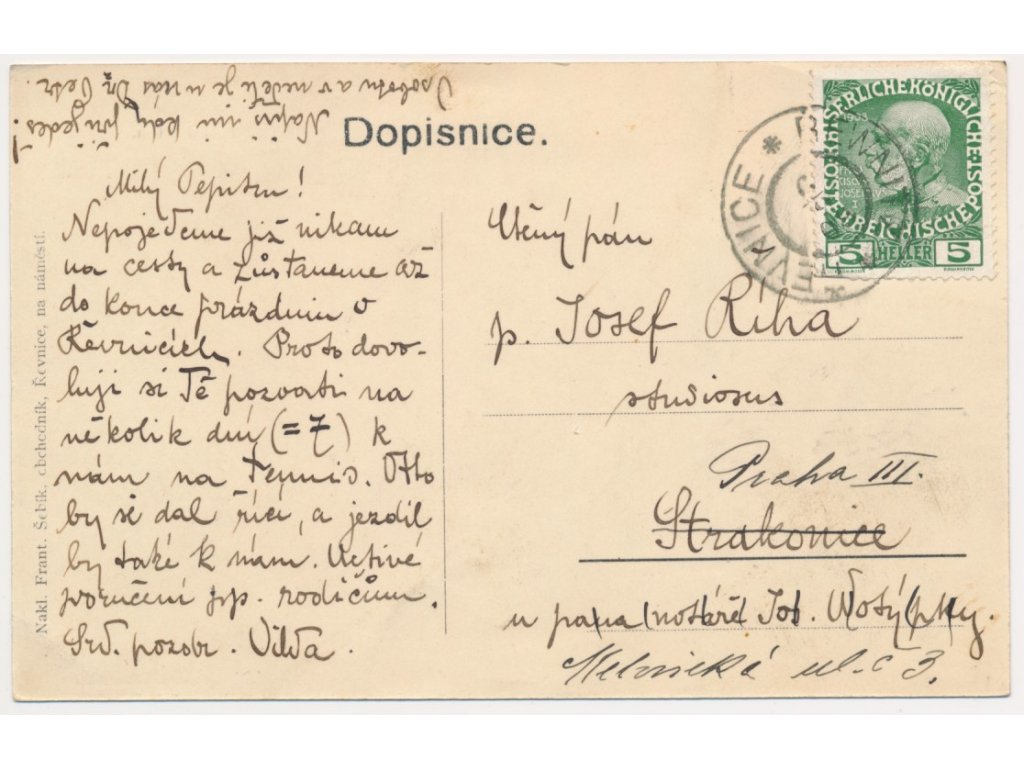 V sobotu a v neděli je u nás Dr Petr.
Napiš mi kdy přijedeš!
Dopisnice.
Milý Pepitku!
Nepojedeme již nikam
na cesty a zůstaneme až
do konce prázdnin v
Řevnicích. Proto dovo-
luji si Tě pozvati na
několik dní (=7) k
nám na tennis. Otto
by se dal říci, a jezdil
by také k nám. Uctivé
poručení pp. rodičům.
Srd. pozdr. Vilda.
Nakl. Frant. Šebík, obchodník, Řevnice, na náměstí.
Ctěný pán
p. Josef Říha
studiosus
Praha III.
Strakonice
u pana notáře Jos.
Mělnická ul. č 3.
KAISERLICHE KÖNIGLICHE
ÖSTERREICHISCHE POST
5 HELLER 5
ŘEVNICE * ŘEWNITZ *